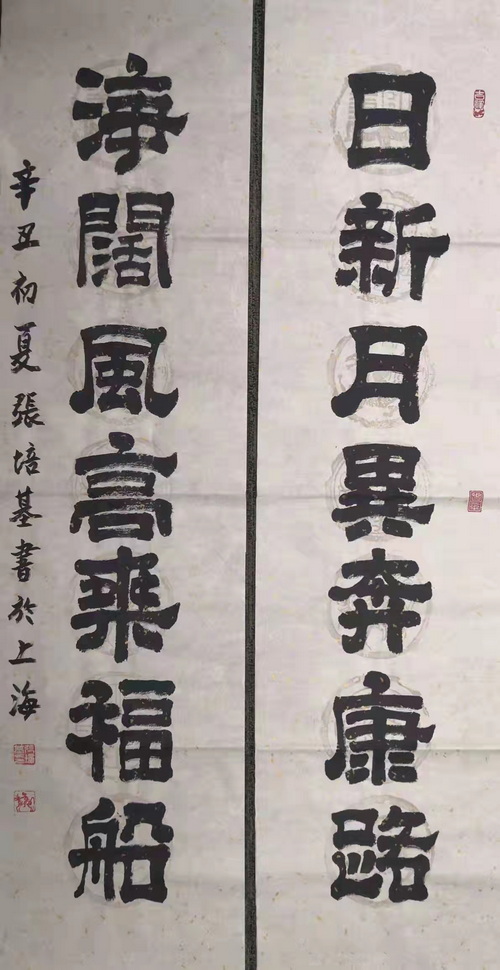 日新月異奔康路
海闊風高乘福船
辛丑初夏張培基書於上海